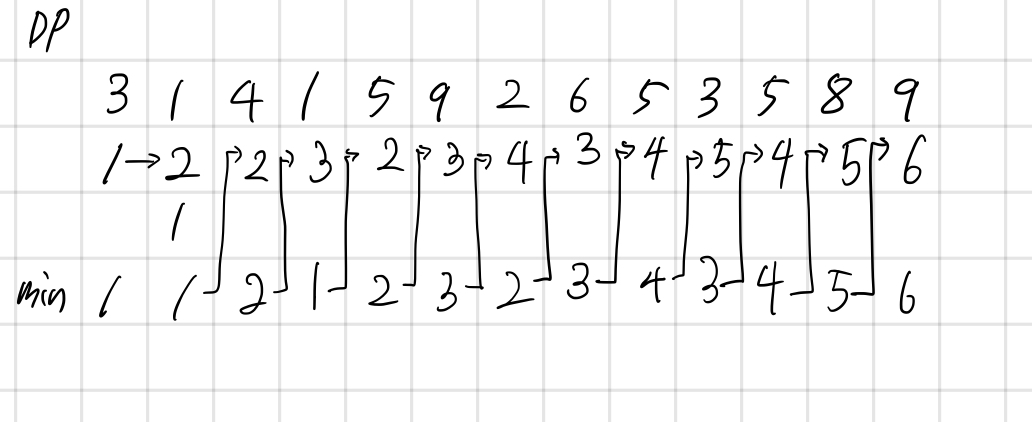 DP
3 1 4 1 5 9 2 6 5 3 5 8 9
1 → 2 2 3 2 3 4 3 4 5 4 5 6
1
min 1 1 2 1 2 3 2 3 4 3 4 5 6